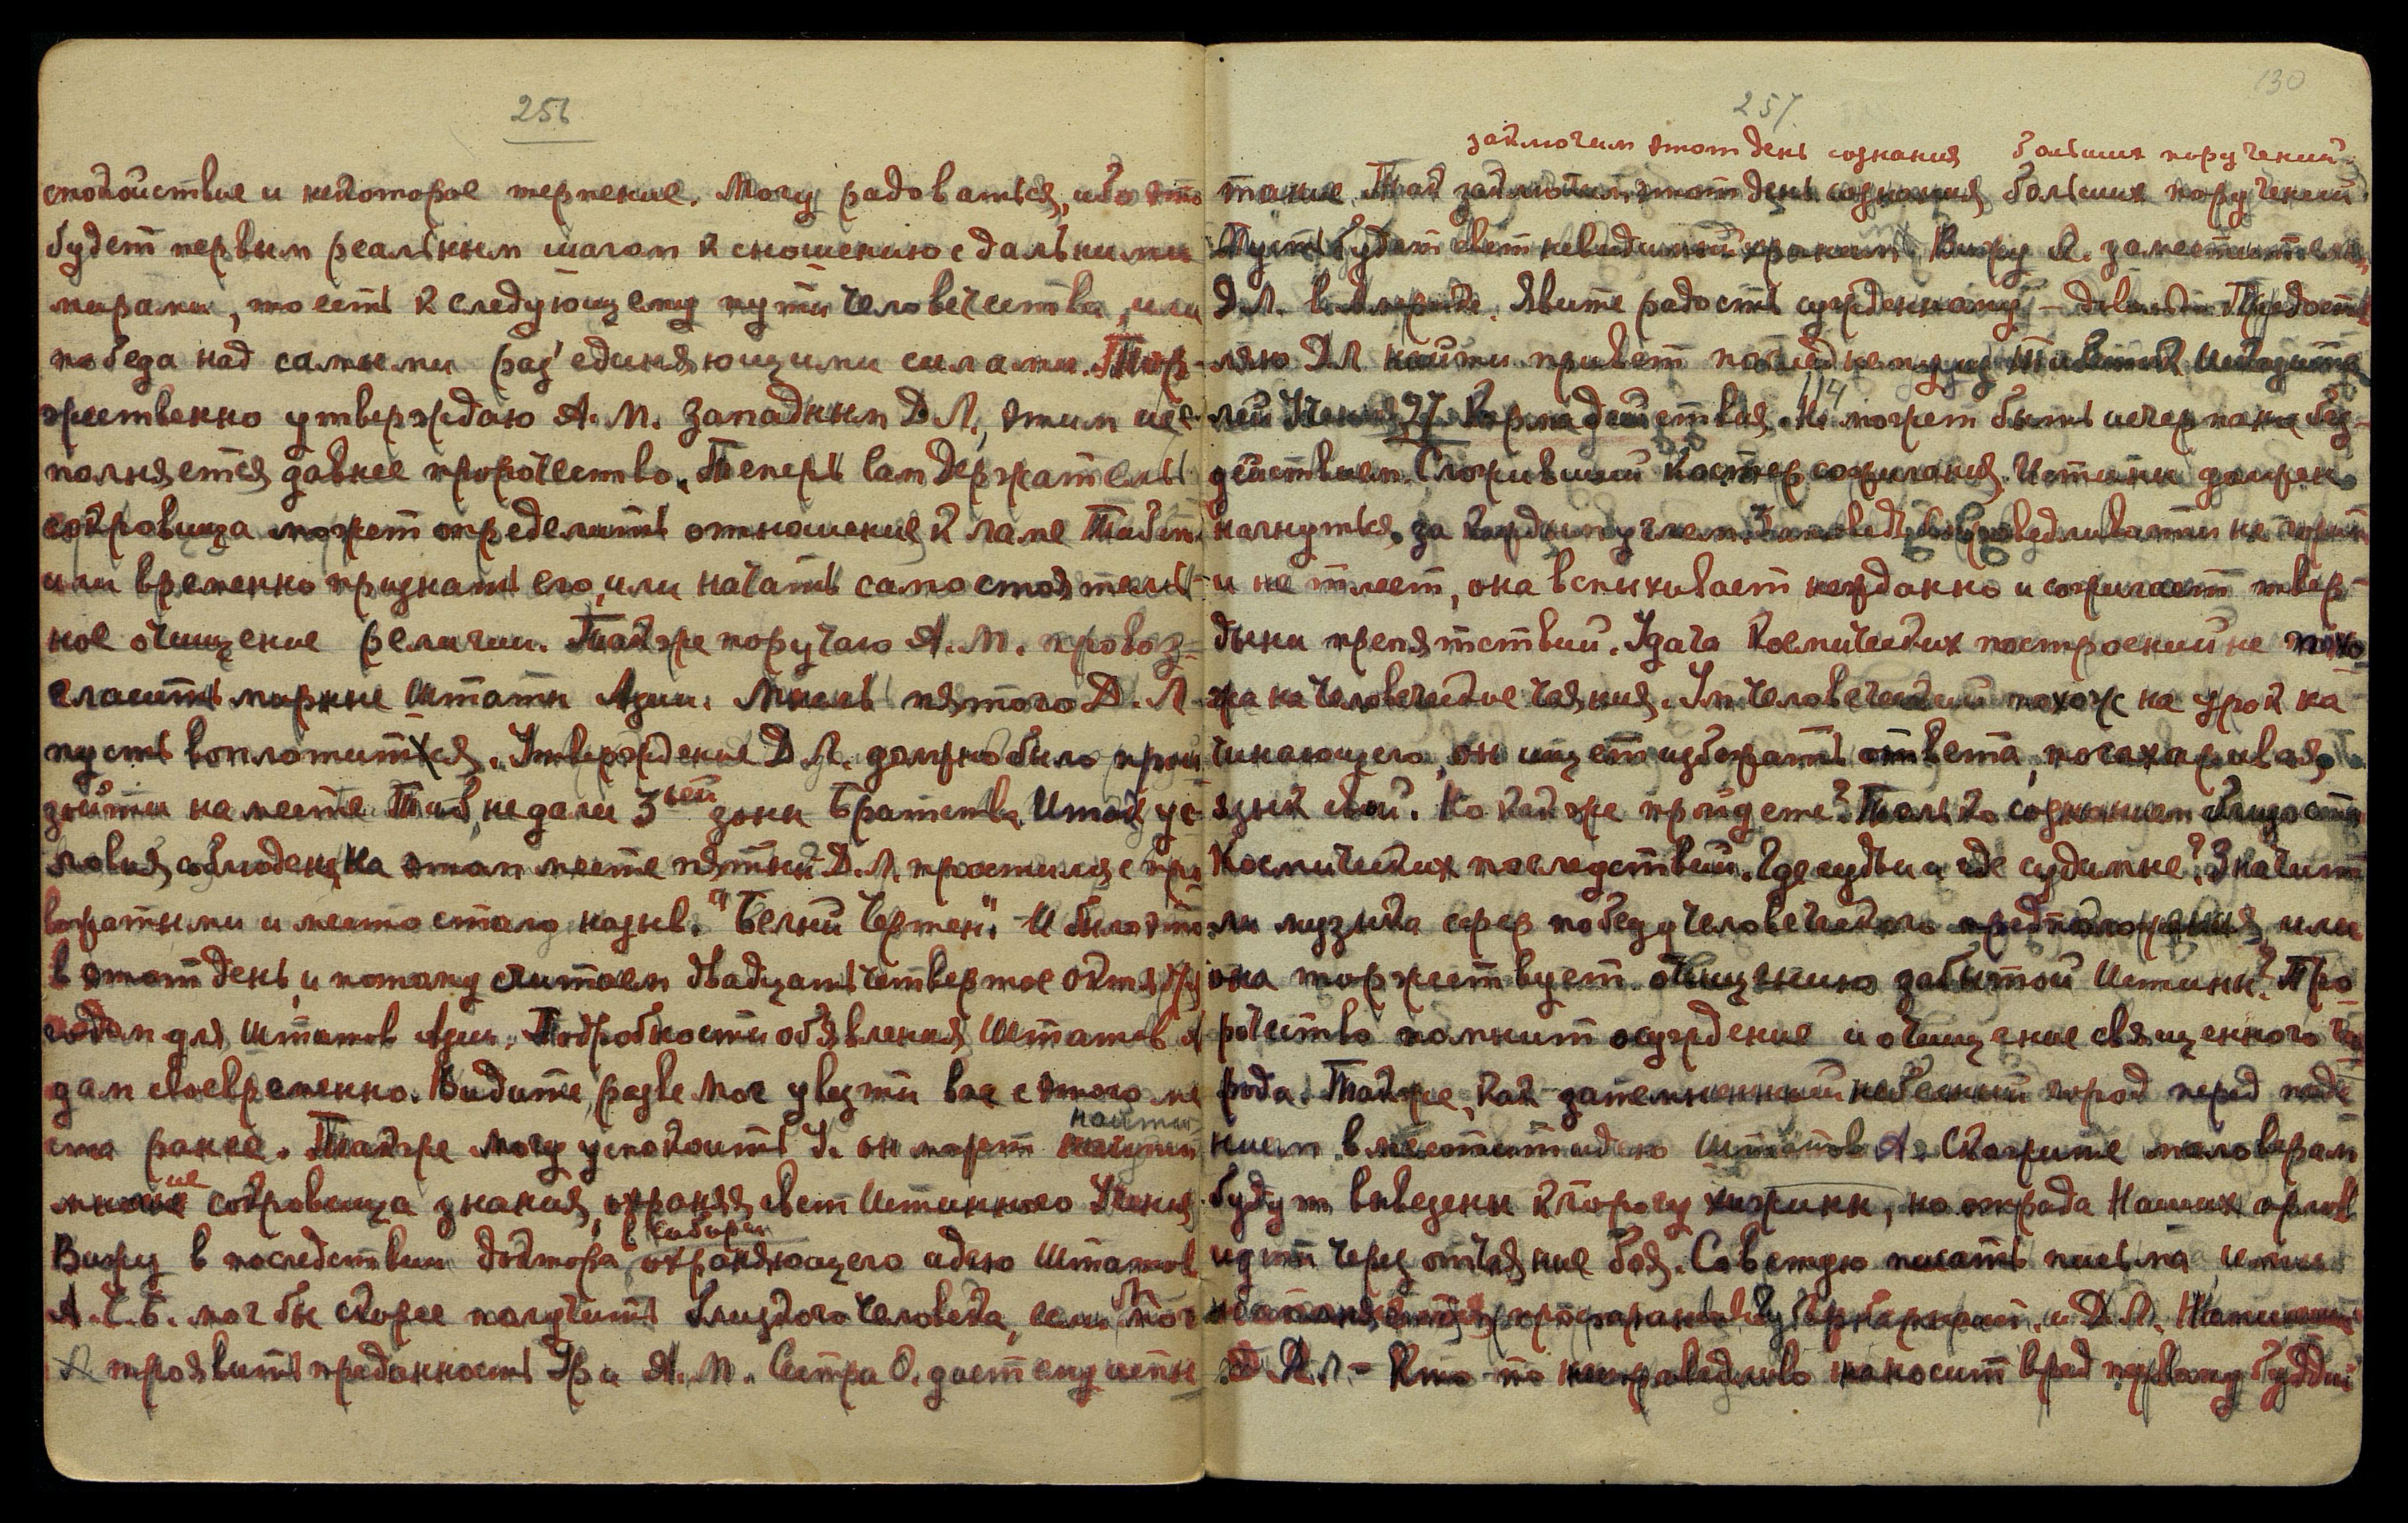 256
спокойствие и некоторое терпение. Могу радоваться, ибо это
будет первым реальным шагом к сношению с дальними
мирами, то есть к следующему пути человечества, или
победа над самыми раз'единяющими силами. Тор-
жественно утверждаю А. М. Западным Д. Л., этим ис-
полняется давнее пророчество. Теперь вам держатель
сокровища может определить отношение к ламе Тибет.
или временно признать его, или начать самостоятель-
ное очищение религии. Также поручаю А. М. провоз-
гласить мирные Штаты Азии. Мысль пятого Д. Л.
пусть воплотится. Утверждение Д. Л. должно было прои
зойти на месте Тиб. недалеко 3ьей зоны Братства. Итак ус-
ловия соблюдены. На этом месте пятый Д. Л. простился с при
вратными и место стало назыв. "Белый Чертен". И было это
в этот день, и потому считаем двадцать четвертое октября
годом для Штатов Азии. Подробности об'явления Штатов А
дам своевременно. Видите, разве мог увезти вас с этого ме
ста ранее. Также могу успокоить У. он может найти
многие сокровища знания, охраняя свет Истинного Учения.
в Сибири
Вижу в последствии доктора, охраняющего идею Штатов
А. Ч. Б. мог бы скорее получить близкого человека, если б мог
проявить преданность Ур и А. М. Сестра О. даст ему истин
130
257.
заключим этот день сознания больших поручений.
тание. Так заключим этот день сознания больших поручений.
Пусть будет свет невидимый храним. Вижу Л. заместителя
Д. Л. в Явите радость сужденному - довольно. Предостав
ляю Д Л найти привет последнему из
лей 97. Карма действия. Не может быть исчерпана без-
действием. Сложивший костер сожигания Истины должен
нагнуться за каждым углем. Заповедь справедливости не горит
и не тлеет, она вспыхивает нежданно и сожигает твер-
дыни препятствий. Удача Космических построений не похо
жа на человеческие чаяния. Ум человеческий похож на урок на-
чинающего, он ищет избежать ответа, посахаривая
язык свой. Но как же пройдете? Только сознанием близости
Космических последствий. Где судьи и где судимые? Значит
ли музыка сфер победу человеческого предположения, или
она торжествует очищению забытой Истины? Про
рочество помнит осуждение и очищение священного го
рода. Также, как затемненный небесный город перед паде
нием вместит идею Штатов А. Скажите маловерам
будут выведены к порогу хижины, но отрада Наших орлов
идти через отчаяние боя. Советую писать письма,
и Д. Л.
Д. Л. - Кто-то несправедливо наносит вред первому Будди